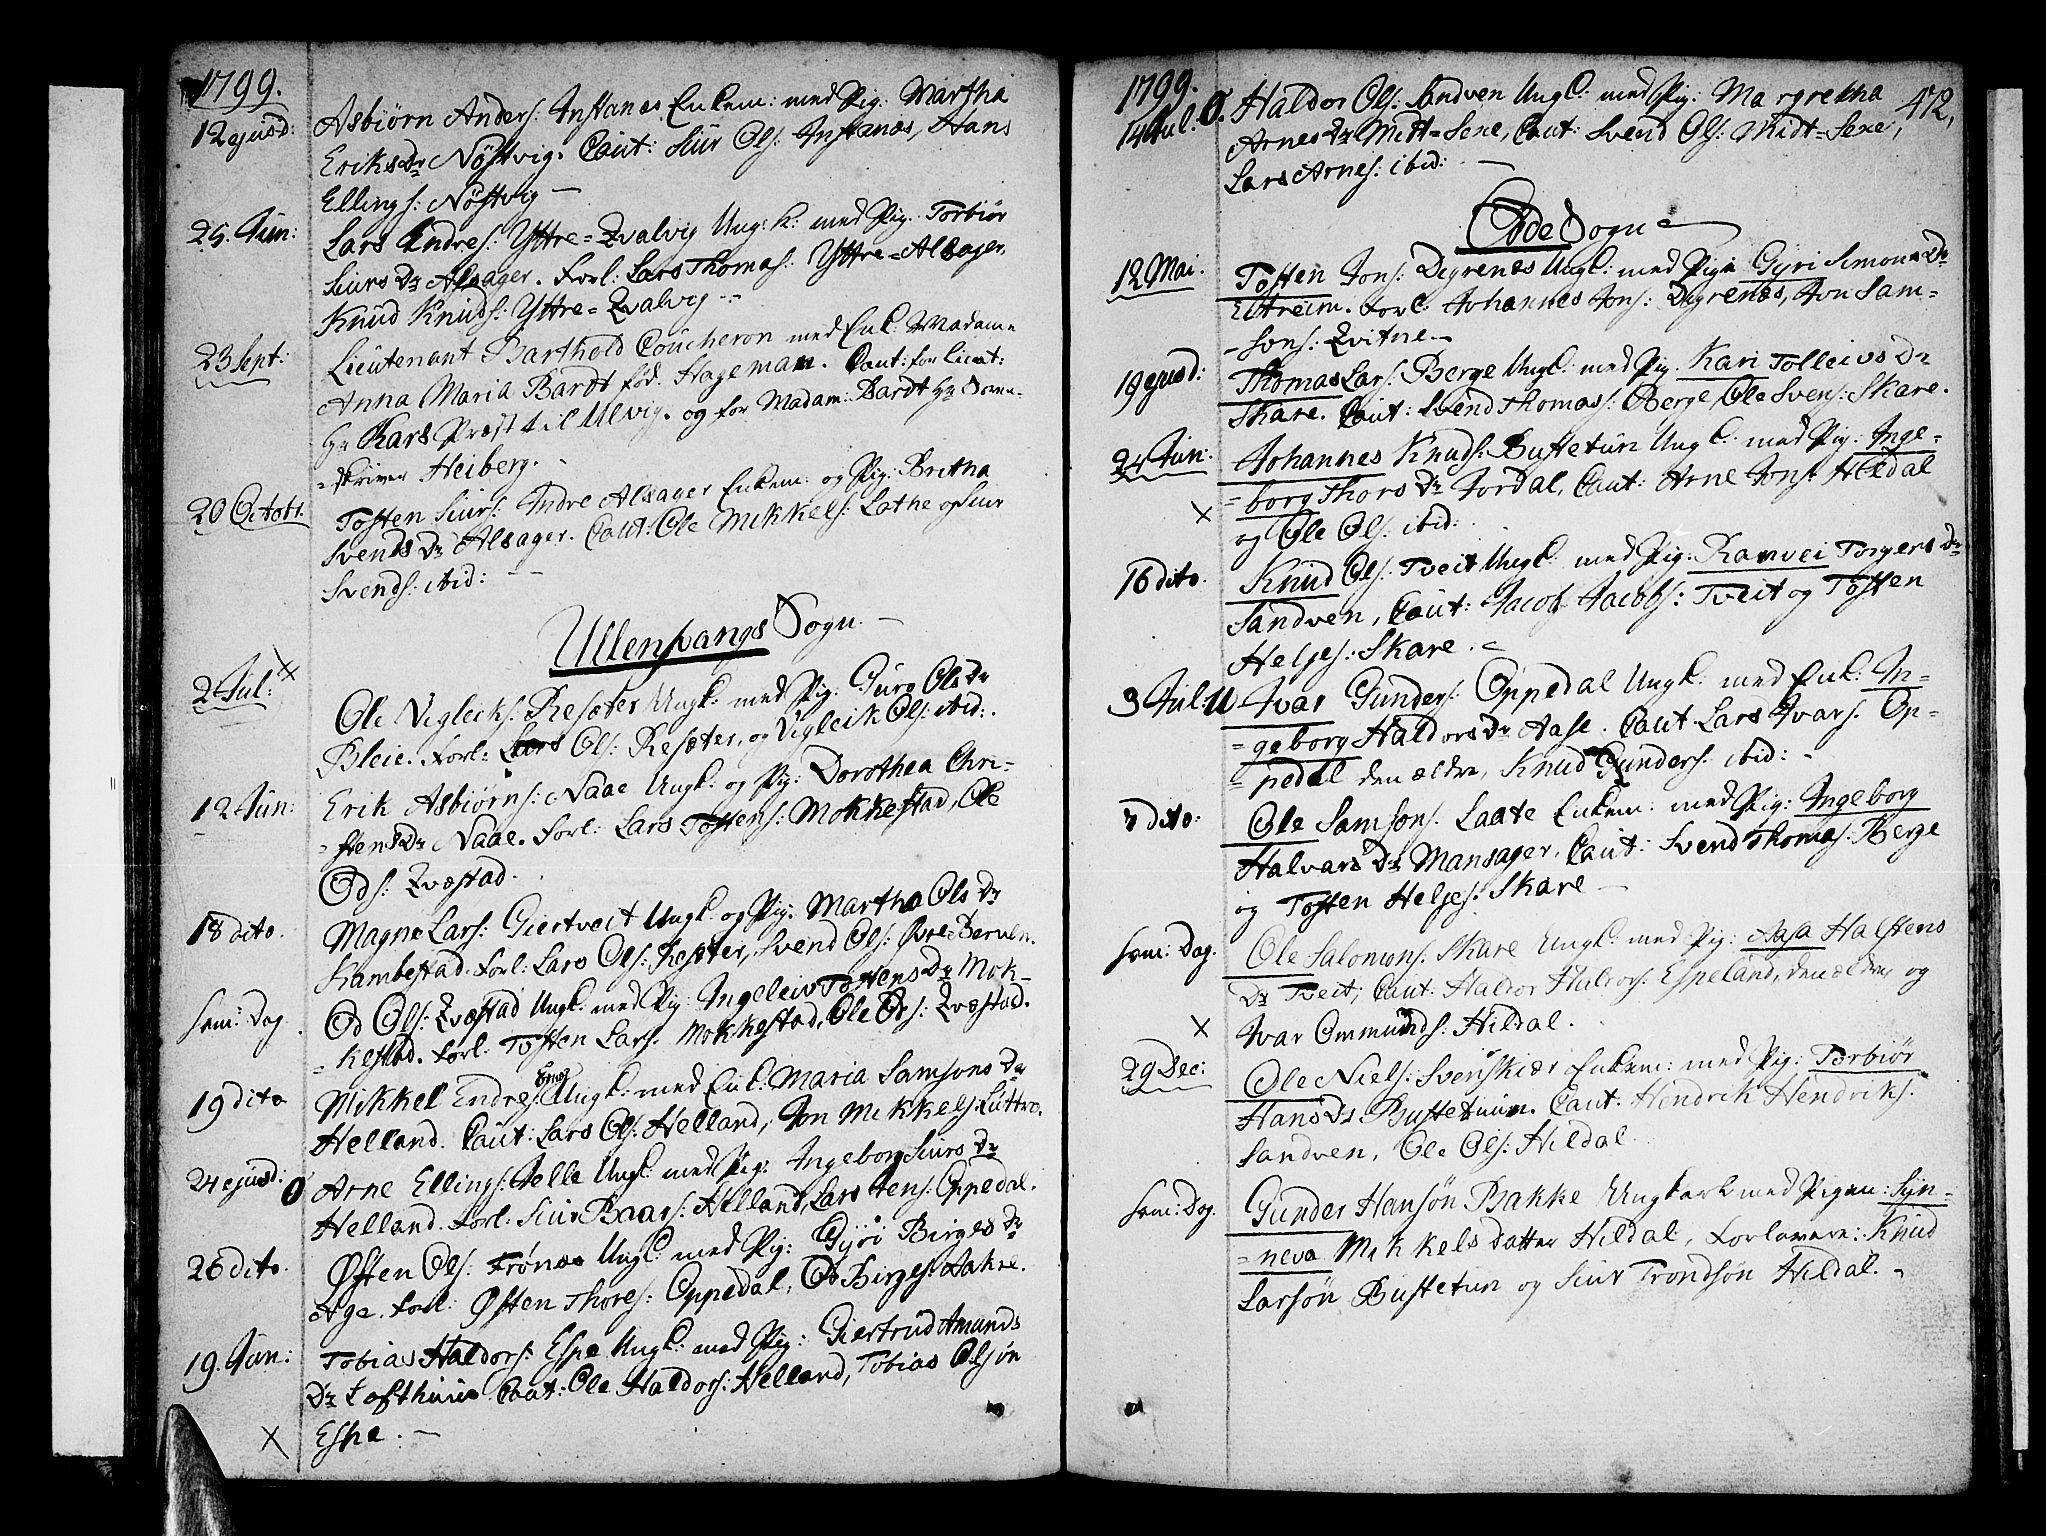 1799.
12 ejusd: Asbiørn Anders: Instanæs Enkem: med Pig: Martha
Eriksdr Nøstvig. Caut: Siur Ols: Instanæs, Hans
Ellings: Nøstvig —
25. Jun: Lars Endres: Yttre=Qvalvig Ung: k: med Pig: Torbiør
Siurs Dr Alsager. Forl: Lars Thomas: Yttre=Alsager,
Knud Knuds: Yttre=Qvalvig —
23 Sept: Lieutenant Barthold Coucheron med Enk: Madame
Anna Maria Bardt fød. Hageman. Caut: for Lieut:
Hr Kars Præst til Ulvig. og for Madam: Bardt Hr Soren-
-skriver Heiberg. -
20 Octobr. Tosten Siurs: Indre Alsager Enkem: og Pig: Britha
Svends Dr Alsager. Caut: Ole Mikkels: Lothe og Siur
Svends: ibid: —
Ullensvangs Sogn. —
2 Jul: × Ole Vigleiks: Resæter Ungk: med Pig: Guro Olsdr
Bleie. Forl: Lars Ols: Resæter, og Vigleik Ols: ibid:.
12 Jun: Erik Asbiørns: Naae Ungk: og Pig: Dorothea Chri-
-stensdr Naae. Forl: Lars Tostens: Mokkestad, Ole
Ods: Qvæstad.
18 dito. Magne Lars: Giertveit Ungk: og Pig: Martha Ols Dr
Kambestad. Forl: Lars Ols: Resæter, Svend Ols: Øvre Berven.
Sam: Dag. Od Ols: Qvæstad Ungk: med Pig: Ingeleiv Tostens Dr Mok-
-kestad. Forl: Tosten Lars: Mokkestad, Ole Ods: Qvæstad.
19 dito Mikkel Endres: Ungk: med Enk: Maria Samsons Dr
Helland. Caut: Lars Ols: Helland, Jon Mikkels: Luttro.
24 ejusd: O Arne Ellings: Velle Ungk: med Pig: Ingeborg Siurs Dr
Helland. Forl: Siur Baars: Helland, Lars Jens: Oppedal.
26 dito. Østen Ols: Trønæs Ungk: med Pig: Gyrò Birges Dr
Age. Forl: Østen Thores: Oppedal, Od Birges: Aakre.
19. Jun: Tobias Haldors: Espe Ungk: med Pig: Giertrud Amunds
Dr Lofthuus Caut: Ole Haldors: Helland, Tobias Olsøn
× Espe. —
1799. 472,
14 Jul: O. Haldor Ols: Sandven Ungk: med Pig: Margretha
Arnes Dr Midt=Sexe, Caut: Svend Ols: Midt=Sexe,
Lars Arnes: ibid: —
Odde Sogn
12 Mai. Tosten Jons: Digrenæs Ungk: med Pige Gyri Simons Dr
Eitreim. Forl: Johannes Jons: Digrenæs, Jon Sam-
-sons: Qvitne —
19 ejusd: Thomas Lars: Berge Ungk: med Pig: Kari Tolleivs Dr
Skare. Caut: Svend Thomas: Berge, Ole Svens: Skare.
24 Jun: Johannes Knuds: Bustetun Ungk: med Pig: Inge-
-borg Thors Dr Jordal, Caut: Arne Jons: Hildal
× og Ole Ols: ibid:
16 dito. Knud Ols: Tveit Ungk: med Pig: Ranvei Torgers Dr
Sandven, Caut: Jacob Jacobs: Tveit og Tosten
Heljes: Skare.
3 Jul: U Ivar Gunders: Oppedal Ungk: med Enk: In-
-geborg Haldors Dr Aase. Caut. Lars Ivars: Op-
-pedal den ældre, Knud Gunders: ibid: -
7 dito: Ole Samsons: Laate Enkem: med Pig: Ingeborg
Halvars Dr Mansager, Caut: Svend Thomas: Berge
og Tosten Helges: Skare —
Sam: Dag. Ole Salomons: Skare Ungk: med Pig: Aasa Halstens
Dr Tveit, Caut: Haldor Haldors: Espeland, den ældre, og
× Ivar Ommunds: Hildal.
29 Dec: Ole Niels: Svenskiær Enkem: med Pig: Torbiør
Hans Dr Bustetuun. Caut: Hendrik Hendriks:
Sandven, Ole Ols: Hildal.
Sam: Dag. Gunder Hansøn Bakke Ungkarl med Pigen: Syn-
-neva Mikkelsdatter Hildal, Forlovere: Knud
Larsøn Bustetun og Siur Trondsøn Hildal. -